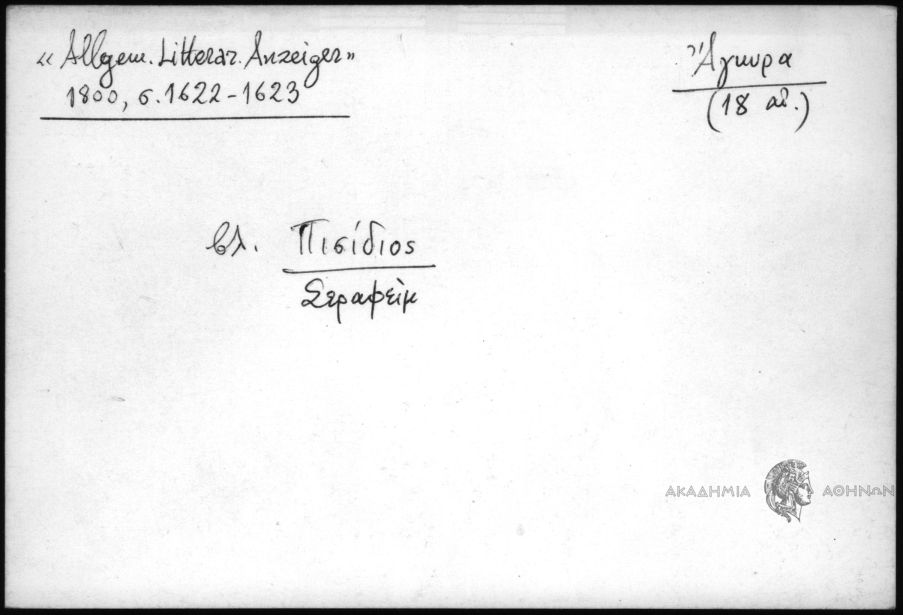 « Allgem. Litterar. Anzeiger»
1800, σ. 1622-1623
Ἄγκυρα
(18 αἰ.)
βλ. Πισίδιος
Σεραφείμ
ΑΚΑΔΗΜΙΑ ΑΘΗΝΩΝ